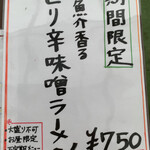 期間限定
魚介香る
ピリ辛味噌ラーメン
¥750
・大盛り不可
・お昼限定